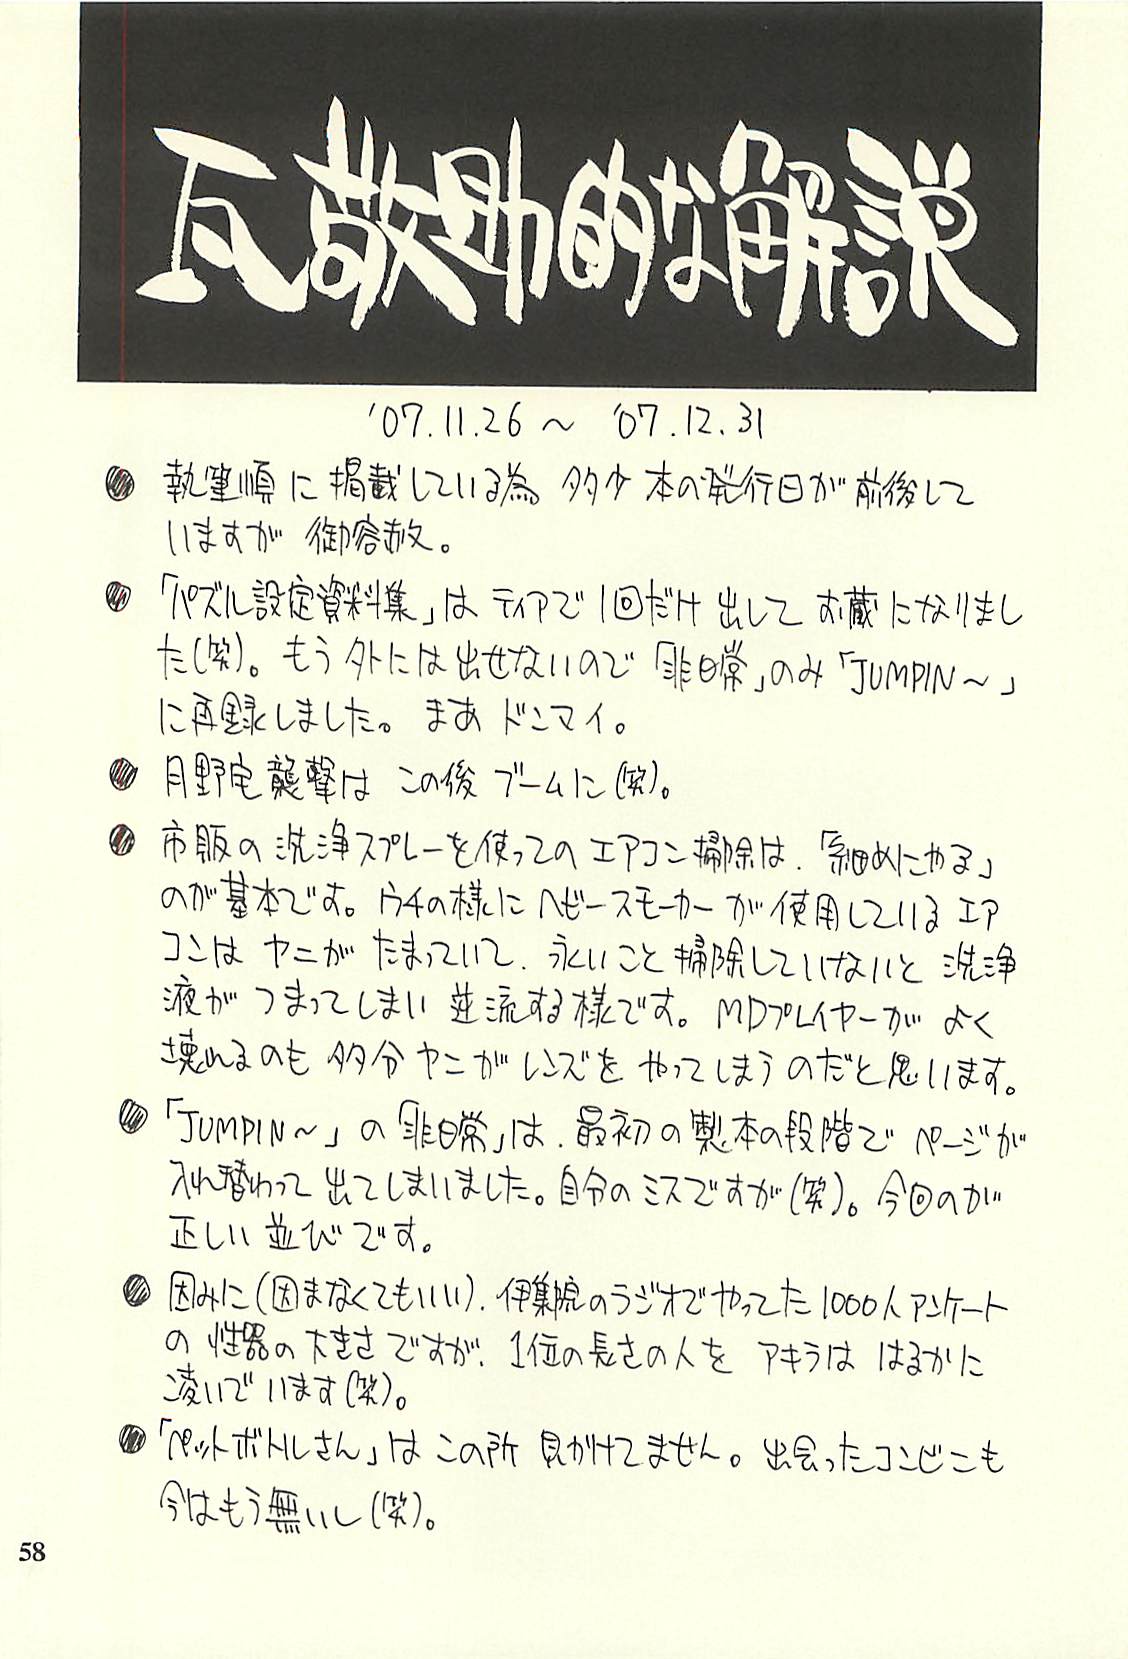 瓦敬助的な解説
'07.11.26〜 '07.12.31
● 執筆順に掲載している為 多少 本の発行日が前後して
いますが 御容赦。
● 「パズル設定資料集」は ティアで1回だけ 出して お蔵になりまし
た(笑)。もう外には出せないので「非日常」のみ「JUMPIN〜」
に再録しました。まあ ドンマイ。
● 月野宅襲撃は この後 ブームに(笑)。
● 市販の洗浄スプレーを使ってのエアコン掃除は、「細めにやる」
のが基本です。ウチの様にヘビースモーカーが使用しているエア
コンは ヤニが たまっていて、永いこと掃除していけないと 洗浄
液が つまってしまい 逆流する様です。MDプレイヤーが よく
壊れるのも 多分ヤニがレンズを やってしまうのだと思います。
● 「JUMPIN〜」の「非日常」は、最初の製本の段階で ページが
入れ替わって 出てしまいました。自分のミスですが(笑)。今回のが
正しい並びです。
● 因みに(因まなくてもいい)、伊集院のラジオでやってた1000人アンケート
の 性器の大きさですが、1位の長さの人を アキラは はるかに
凌いでいます(笑)。
● 「ペットボトルさん」は この所 見かけてません。出会ったコンビニも
今はもう無いし(笑)。
58